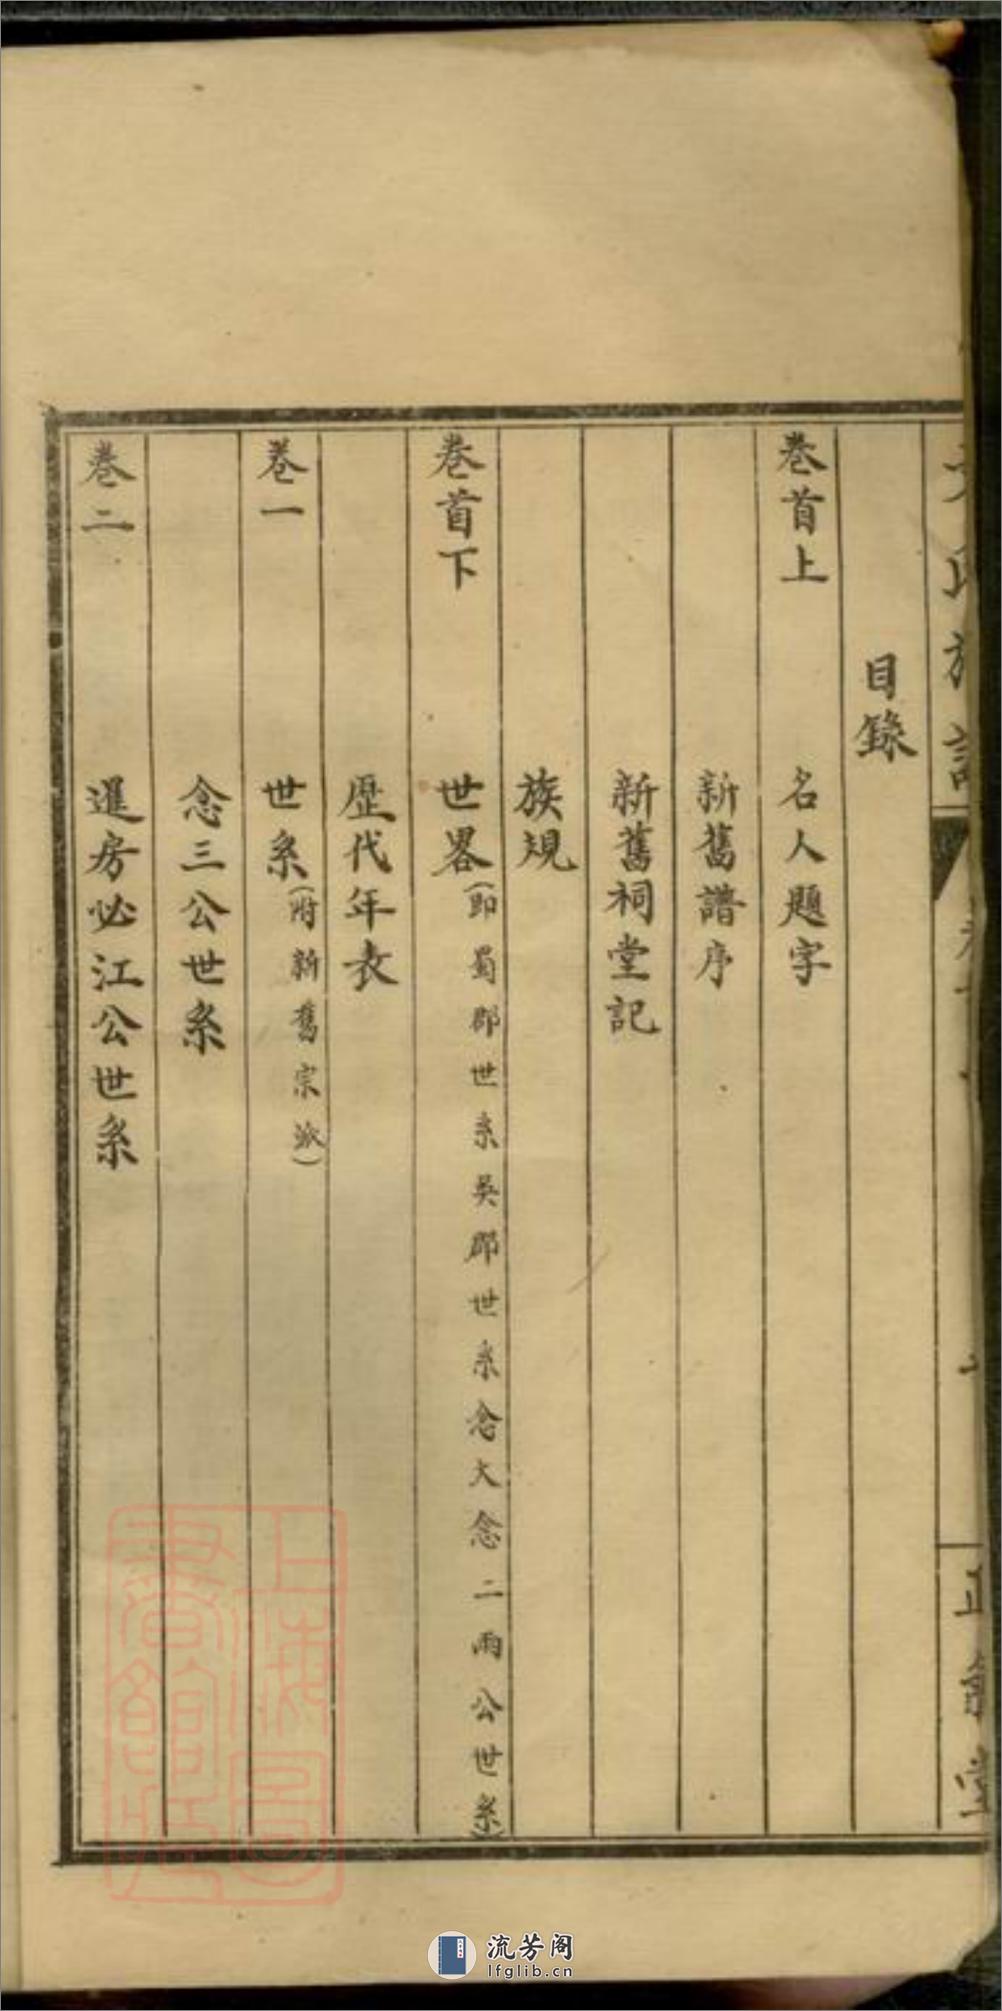 目錄
卷首上　名人題字
新舊譜序
新舊祠堂記
族規
卷首下　世畧(即蜀郡世系吳郡世系念大念二兩公世系)
歷代年表
卷一　世系(附新舊宗派)
念三公世系
卷二　暹房必江公世系
上海圖書館藏
流芳阁
lfglib.cn